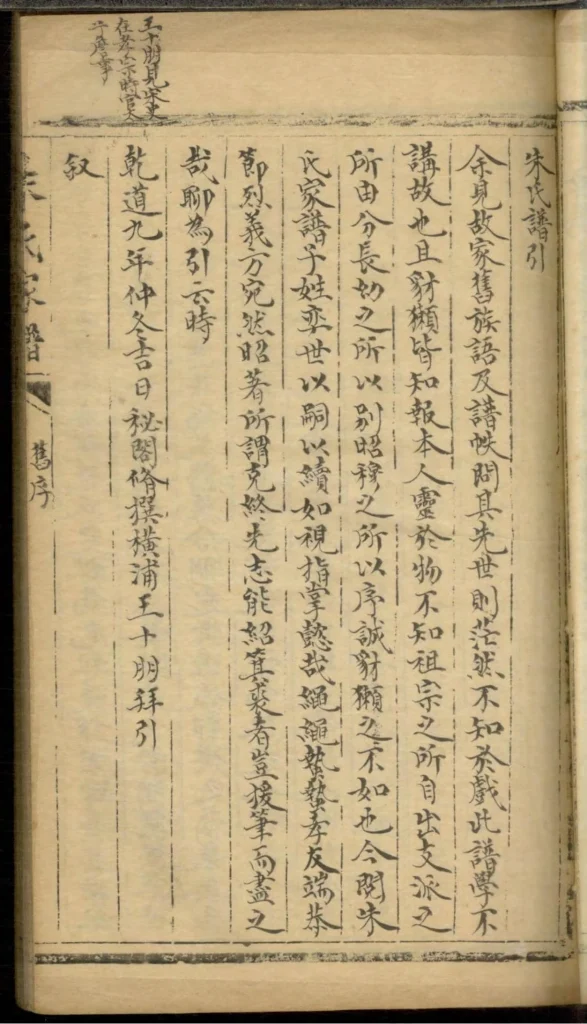 朱氏譜引
余見故家舊族語及譜帙問其先世則茫然不知於戲此譜學不
講故也且豺獺皆知報本人靈於物不知祖宗之所自出支派之
所由分長幼之所以别昭穆之所以序誠豺獺之不如也今閱朱
氏家譜子姓奕世以嗣以續如視指掌懿哉繩繩蟄蟄孝友端恭
節烈義方宛然昭著所謂克終先志能紹箕裘者豈援筆而盡之
哉聊為引云時
乾道九年仲冬吉日秘閣脩撰橫浦王十朋拜引
叙
王十朋見宋史
在孝宗時官太
子詹事
朱氏家譜
舊序